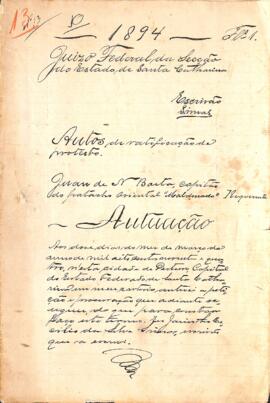 1894
Fls 1.
Juizo Federal da Secção
do Estado de Santa Catharina
Escrivão
Autos de ratificação de
protesto.
Juan de N. capitão
do patacho oriental "Maldonado" Requerente
Autuação
Aos doze dias do mez de março do
anno de mil oito centos noventa e qua-
tro, nesta cidade do Desterro, Capital
do Estado Federal de Santa Catha-
rina, em meu cartorio, autuei a peti-
ção e procuração que adiante se
seguem, do que para constar
faço este termo. Eu
da Silva escrivão
que o escrevi.